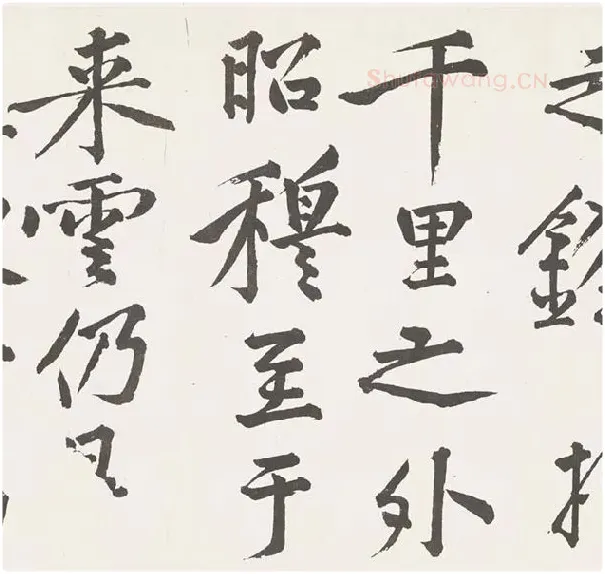 Shufawang.CN
之
千里之外
昭穆至于
来雲仍